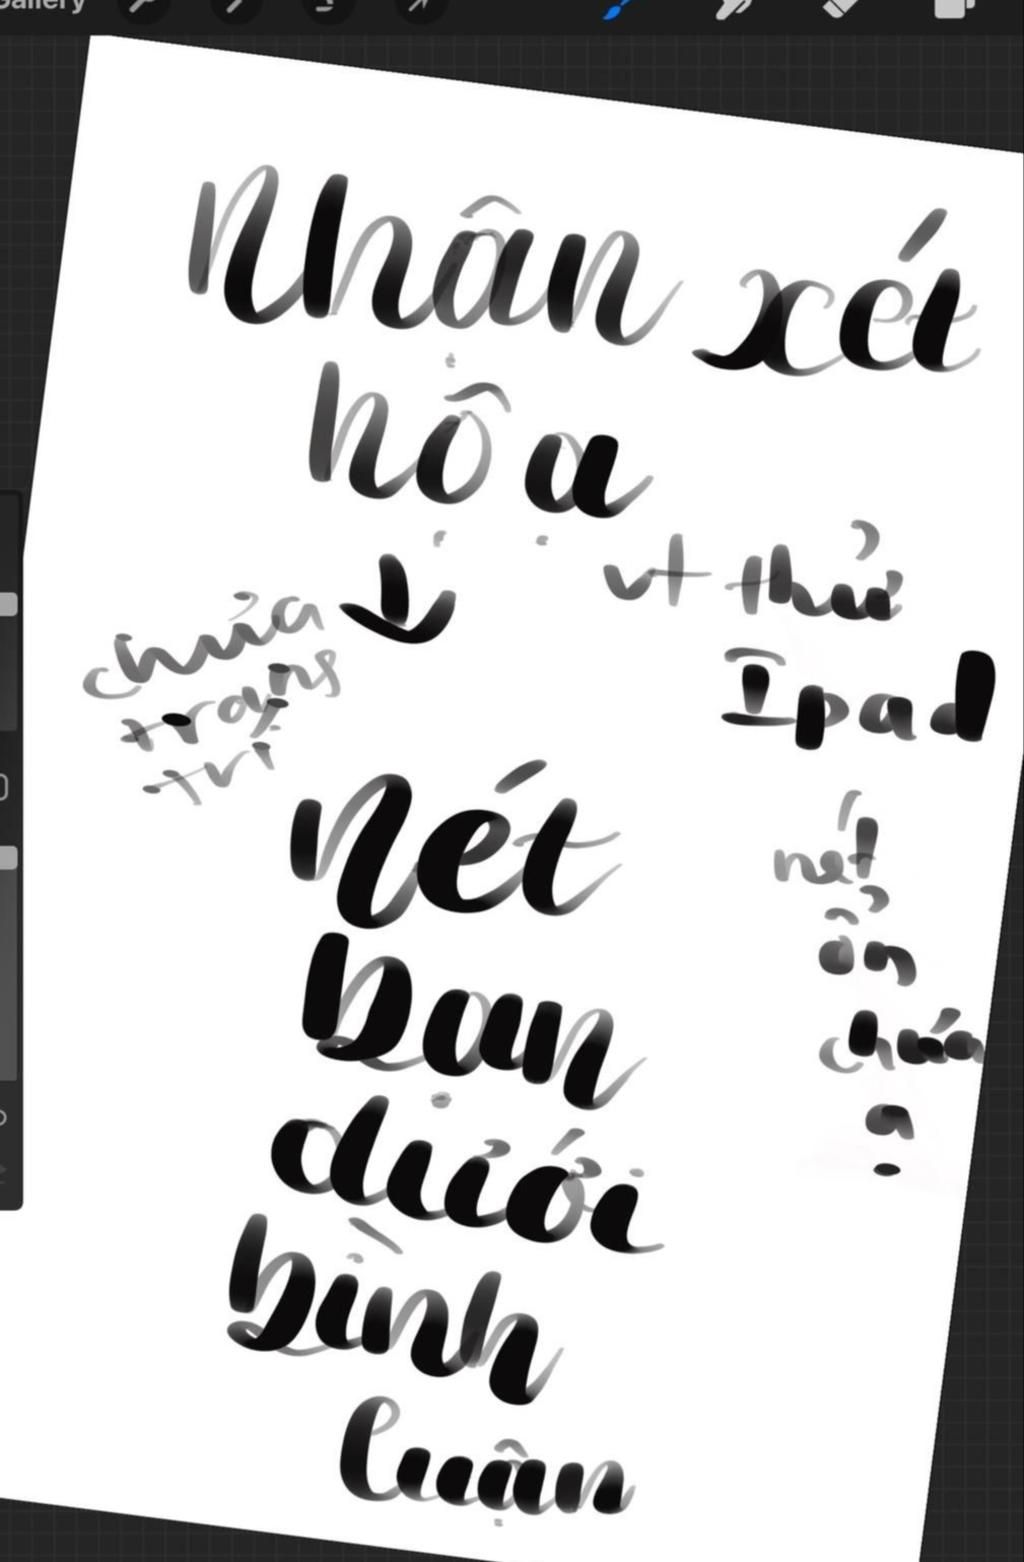 Gallery
Nhận xét
hộ ạ
vt thử
Ipad
chưa
trang
trí
nét
ổn
chứ
ạ
Nét
bạn
dưới
bình
luận